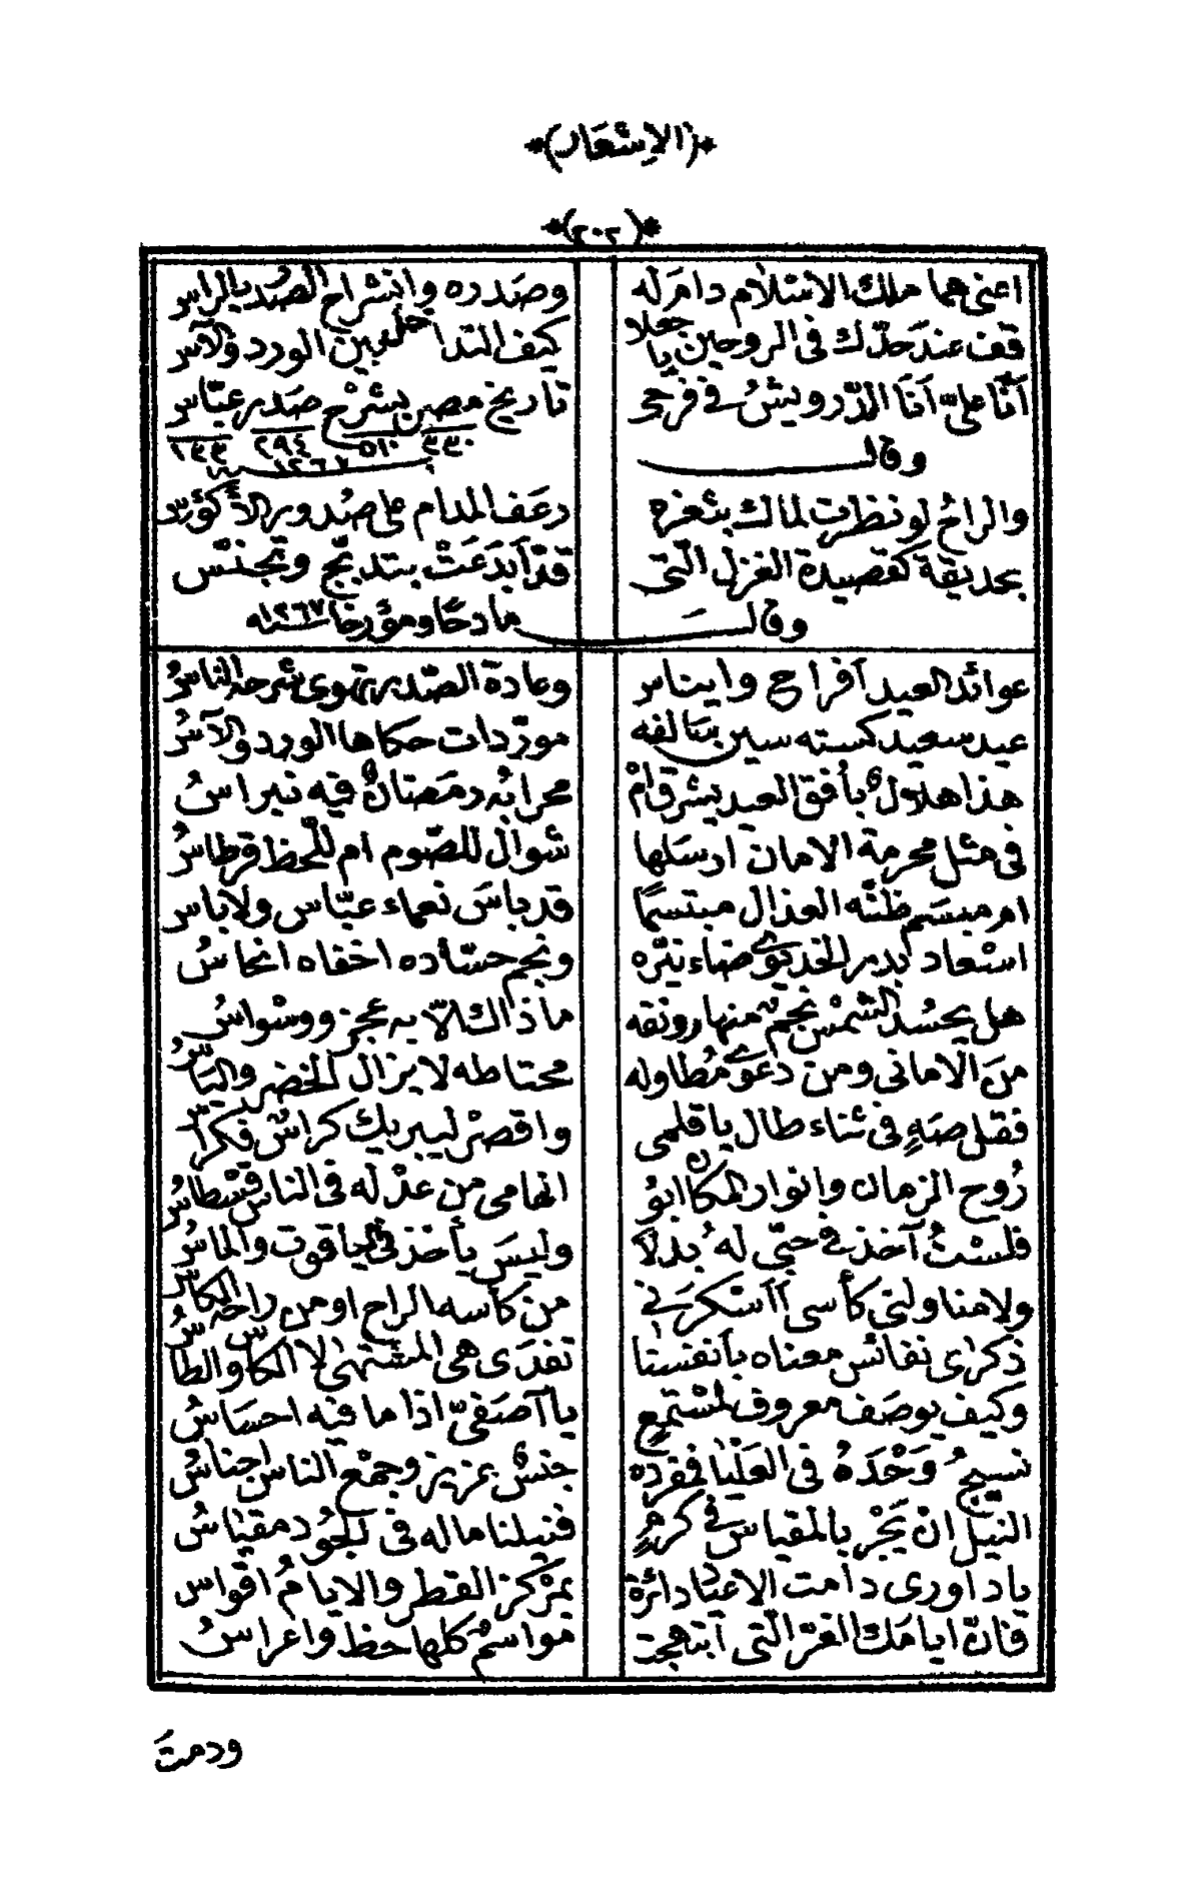 *(الاشعار)*
*(٢٠٢)*
اعنى هما ملك الاسلام دام له وصدره وانشراح الصدر بالراس
قف عند حدّك فى الروحين يا جعلا كيف التدا بين الورد والآس
أنا علىّ أنا الدّرويش فى فرحى تاريخ مصر بشرح صدر عبّاس
٣٣٠ ٥١٠ ٢٩٤ ١٣٣
١٢٦٧
وقال
والراح لو نظرت لمالك بثغره رعف المدام على صدور الأكؤس
بحديقة كقصيدة الغزل الّتى قد أبدعت بتدبّج وتجنّس
وقال مادحًا ومؤرخا سنه ١٢٦٧
عوائد العيد أفراح وايناس وعادة الصّدر تهوى شرحه الناسُ
عيد سعيد كسته سين سالفه مورّدات حكاها الورد والآسُ
هذا هلالٌ بأفق العيد يشرق أمْ محرابُه رمضانٌ فيه نبراسُ
فى مثل محرمة الامان ارسلها شوال للصّوم ام للّحظ قرطاسُ
ام مبسم ظنّه العذال مبتسمًا قد باسَ نعماء عبّاس ولا باس
اسْعاد بدر الخديوى ضاء نيّره ونجم حسّاده اخفاه انحاسُ
هل يحسُد الشمْس نجمٌ منها رونقه ما ذاك الّا به عجز ووسْواسُ
منَ الامانى ومن دعوى مُطاوله محتاطه لا يزال الخضر والياسُ
فقل صهٍ فى ثناء طال يا قلمى واقصرْ ليبريك كراسٌ فكراسُ
رُوح الزمان وانوار المكان ابوُ الهامى من عدْل له فى الناس قسْطاسُ
فلسْتُ آخذ فى حبّى لهُ بدلًا وليسَ يأخذ فى الياقوت والماسُ
ولا مناولتى كأسى أأسْكرنى من كأسه الراح او من راحه الكاس
ذكراى نفائس معناه بأنفسنا تفدى هى المشتهى لا الكاس والطاسُ
وكيف يوصف معروف لمسْتمعٍ يا آصفىّ اذا ما فيه احسَاسُ
نسيجُ وَحْدَهُ فى العَلْيا فمفرده جنسٌ عزيز وجمْع الناس اجناسُ
النيل انْ يَجْر بالمقياس فى كرمٍ فنيلنا ماله فى الجُود مقياسُ
يا داورى دامت الاعياد دائرة بمرْكز القطر والايامُ اقواس
فانّ ايامك الغرّ الّتى ابتهجت مواسمٌ كلها حظ واعراسُ
ودمتَ